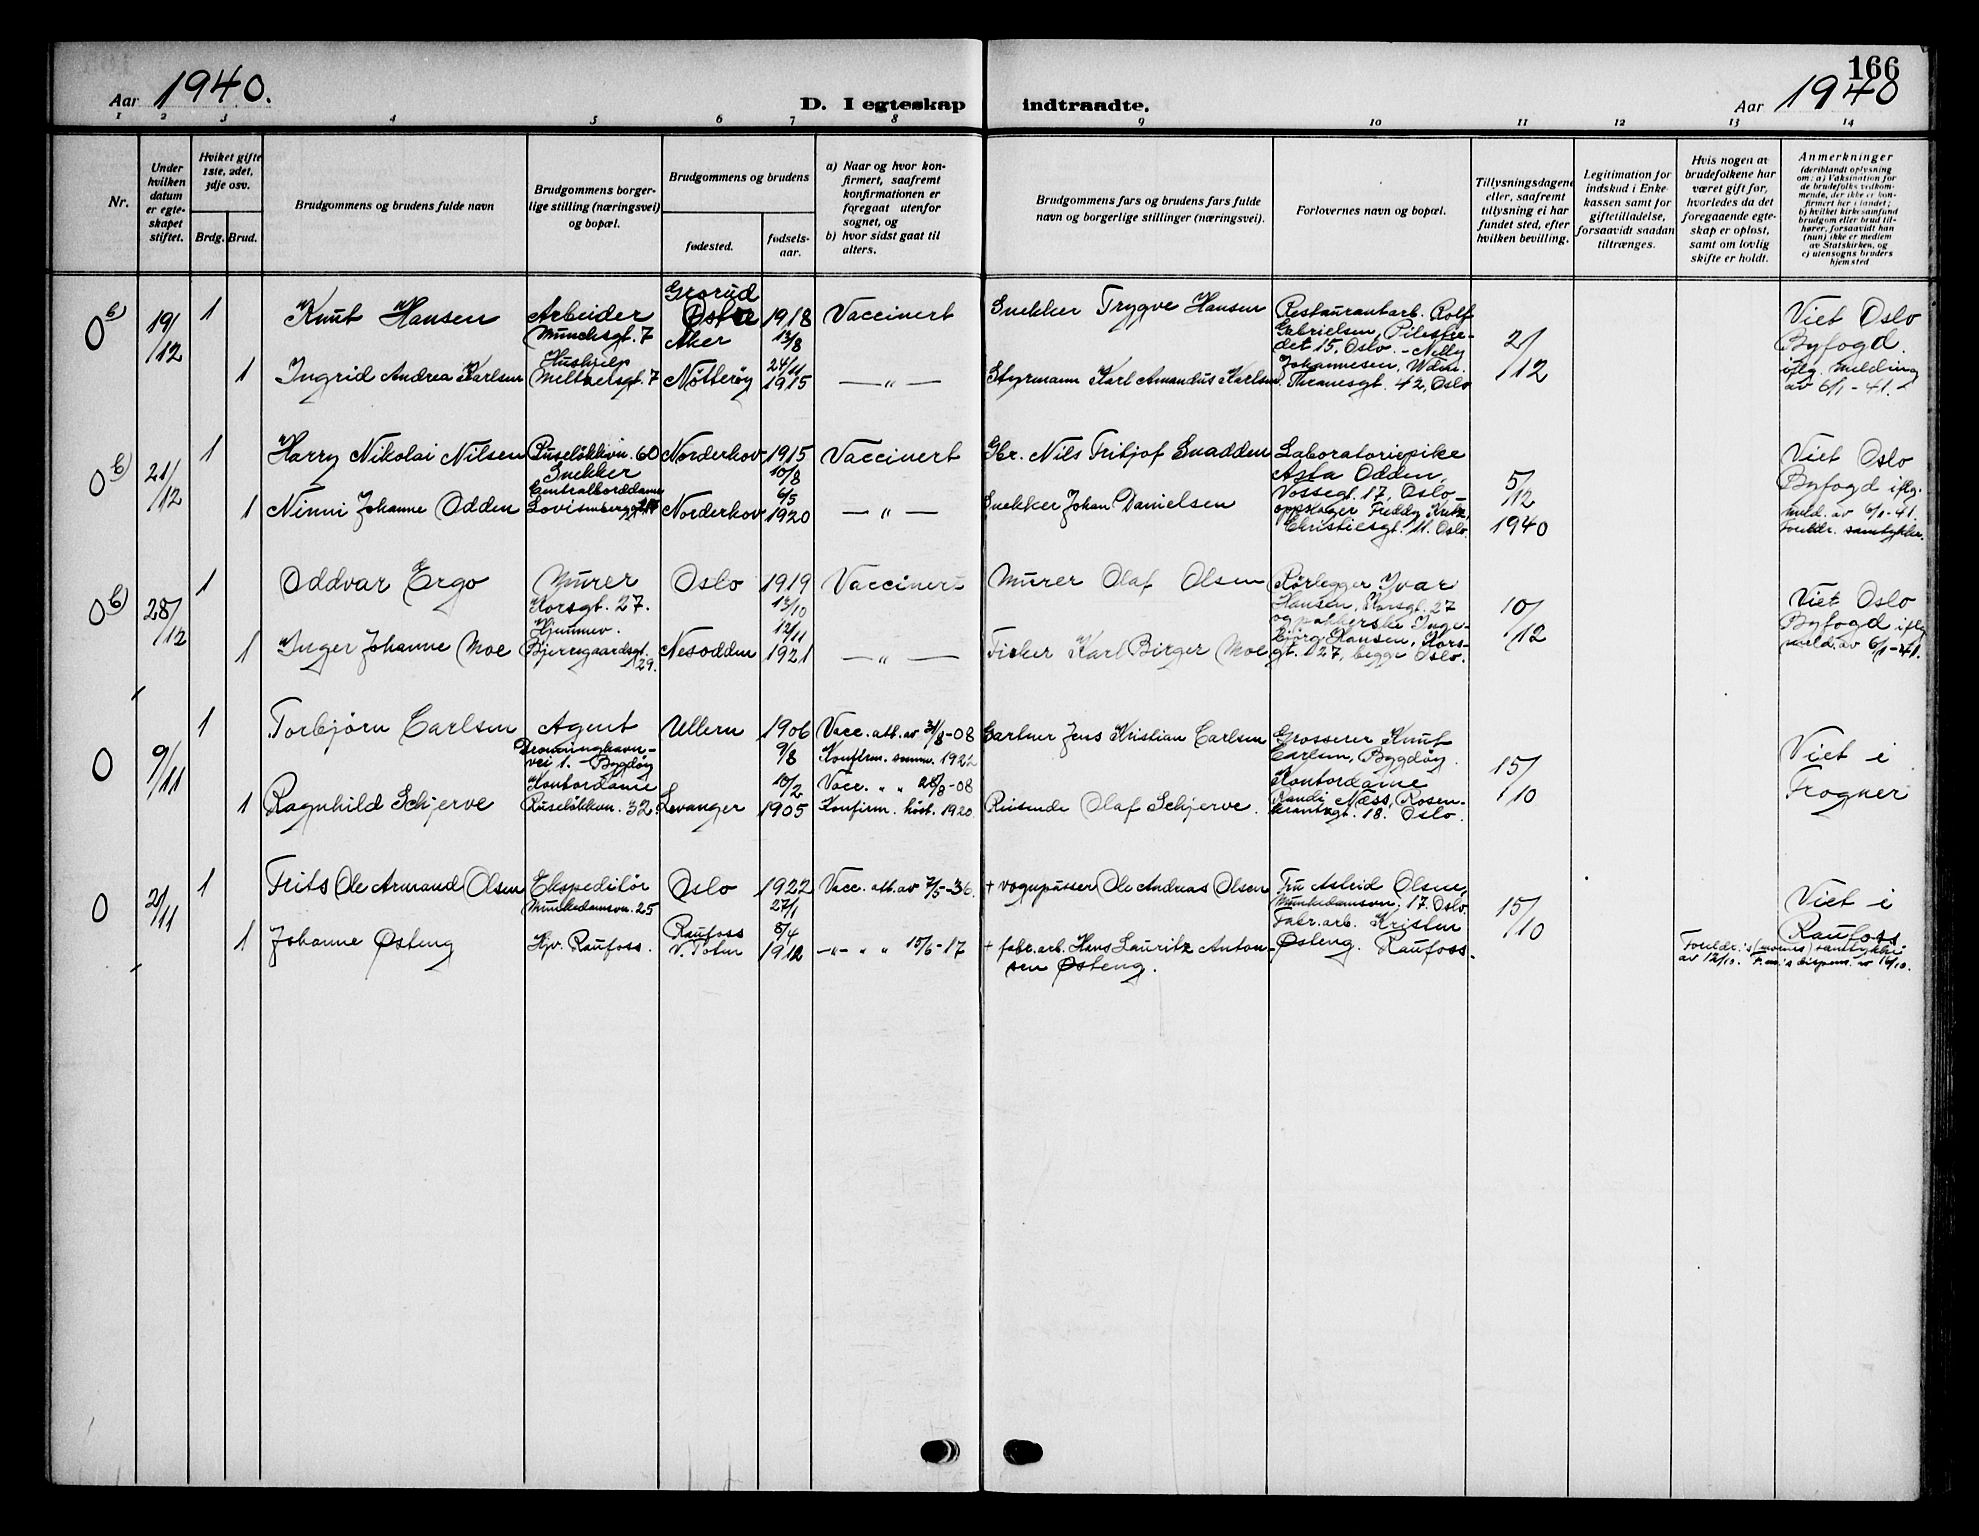 166
Aar 1940.
D. I egteskap indtraadte.
Aar 1940
1 2 3 4 5 6 7 8 9 10 11 12 13 14
Nr.
Under hvilken datum er egteskapet stiftet.
Hvilket gifte 1ste, 2det, 3dje osv.
Brdg. Brud.
Brudgommens og brudens fulde navn
Brudgommens borgerlige stilling (næringsvei) og bopæl.
Brudgommens og brudens
fødested.
fødselsaar.
a) Naar og hvor konfirmert, saafremt konfirmationen er foregaat utenfor sognet, og
b) hvor sidst gaat til alters.
Brudgommens fars og brudens fars fulde navn og borgerlige stillinger (næringsvei).
Forlovernes navn og bopæl.
Tillysningsdagene eller, saafremt tillysning ei har fundet sted, efter hvilken bevilling.
Legitimation for indskud i Enkekassen samt for giftetilladelse, forsaavidt saadan tiltrænges.
Hvis nogen av brudefolkene har været gift før, hvorledes da det foregaaende egteskap er opløst, samt om lovlig skifte er holdt.
Anmerkninger (deriblandt oplysning om: a) Vaksination for de brudefolks vedkommende, der ikke er konfirmert her i landet; b) hvilket kirkesamfund brudgom eller brud tilhører, forsaavidt han (hun) ikke er medlem av Statskirken, og c) utensogns bruders hjemsted
0 b) 19/12 1 Knut Hansen Arbeider Munchsgt. 7 Grorud Østre Aker 1918 13/8 Vaccinert Snekker Trygve Hansen
1 Ingrid Andrea Karlsen Hushjelp Meltzersgt. 7 Nøtterøy 24/11 1915 — " — Styrmann Karl Amandus Karlsen
Restaurantarb. Rolf
Gabrielsen, Pilestredet 15, Oslo. - Nelly
Johannesen, Wdm. Thranesgt. 42, Oslo
2/12
Viet Oslo
Byfogd.
iflg. melding
av 6/1-41.
0 b) 21/12 1 Harry Nikolai Nilsen Ruseløkkvn. 60 Snekker Norderhov 1915 10/8 Vaccinert Gbr. Nils Fritjof Snadden
1 Ninni Johanne Odden Centralborddame Norderhov 6/5 1920 — " — Snekker Johan Danielsen
Laboratoriepike
Asta Odden,
Vossegt. 17, Oslo -
Christiesgt. 11. Oslo.
5/12
1940
Viet Oslo
Byfogd iflg.
meld. av 6/1-41.
Foreldr. samtykker.
0 b) 28/12 1 Oddvar Ergo Murer Korsgt. 27. Oslo 1919 13/10 Vaccinert Murer Olaf Olsen
1 Inger Johanne Moe Hjemmev. Bjerregaardsgt. 29. Nesodden 12/11 1921 — " — Fisker Karl Birger Moe
Rørlegger Ivar
Hansen, Korsgt. 27
og pakkerske Ingebjørg Hansen, Korsgt. 27, begge Oslo.
10/12
Viet Oslo
Byfogd iflg
meld. av 6/1-41.
0 9/11 1 Torbjørn Carlsen Agent Dronninghavnvei 1. - Bygdøy Ullern 1906 9/8 Vacc. att. av 31/8-08 Konfirm. somm. 1922 Gartner Jens Kristian Carlsen
1 Ragnhild Schjerve Kontordame Ruseløkkvn. 32. Levanger 10/2 1905 Vacc. " " 28/8-08 Konfirm. høst. 1920 Reisende Olaf Schjerve.
Grosserer Knut
Carlsen, Bygdøy.
Kontordame
Randi Næss, Rosenkrantzgt. 18. Oslo.
15/10
Viet i
Frogner
0 2/11 1 Frits Ole Armand Olsen Ekspeditør Munkedamsvn. 25 Oslo 1922 27/1 Vacc. att. av 7/5-36. + vognpusser Ole Andreas Olsen
1 Johanne Østeng Hjv. Raufoss. Raufoss V. Toten 8/4 1912 -"- " " 15/6-17 + fabr.arb. Hans Lauritz Antonsen Østeng.
Fru Astrid Olsen,
Munkedamsvn. 17. Oslo.
Fabr.arb. Kristen
Østeng. Raufoss.
15/10
Viet i
Raufoss
Foreldr.'s (morens) samtykke
av 12/10. F.m.'s dispens. av 16/10.